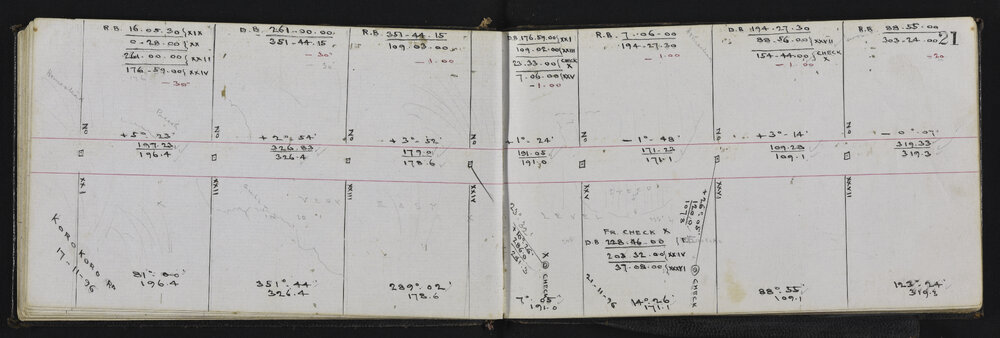 21
R.B. 16.05.30 } XIX
0-28.00 } XX
261.00.00 } XXII
176-59.00 } XXIV
- 30"
D.B. 261-00.00
351-44.15
- 30
30
R.B. 351-44.15"
109.03.00
- 1.00
D.B. 176.59.00 } XXI
109.02.00 } XXIII
23.33.00 } CHECK X
7.06.00 } XXV
- 1.00
R.B. 7.06-00
194-27.30
- 1.00
D.B. 194-27.30
88.56.00 } XXVII
154-44.00 } CHECK X
- 1.00
R.B. 88-55.00
303-24.00
- 20
No XXI
No XXII
No XXIII
No XXIV
No XXV
No XXVI
No XXVII
+5°-23'
197.23
196.4
+2°-54'
326.83
326.4
+3°-52'
179.0
178.6
+1°-24'
191.05
191.0
-1°-48'
171.23
171.1
+3°-14'
109.28
109.1
-0°-07'
319.33
319.3
KOROKORO RD
17-11-96
LEVEL
X CHECK
21-11-96
FR. CHECK X
D.B. 228.46.00
203 32.00 } XXIV
37-08.00 } XXVI
+26°-05'
120.0
107.8
CHECK
81°-00'
196.4
351°-44'
326.4
289°-02'
178.6
7°-05'
191.0
14°-26'
171.1
88°-55'
109.1
123°-24'
319.3